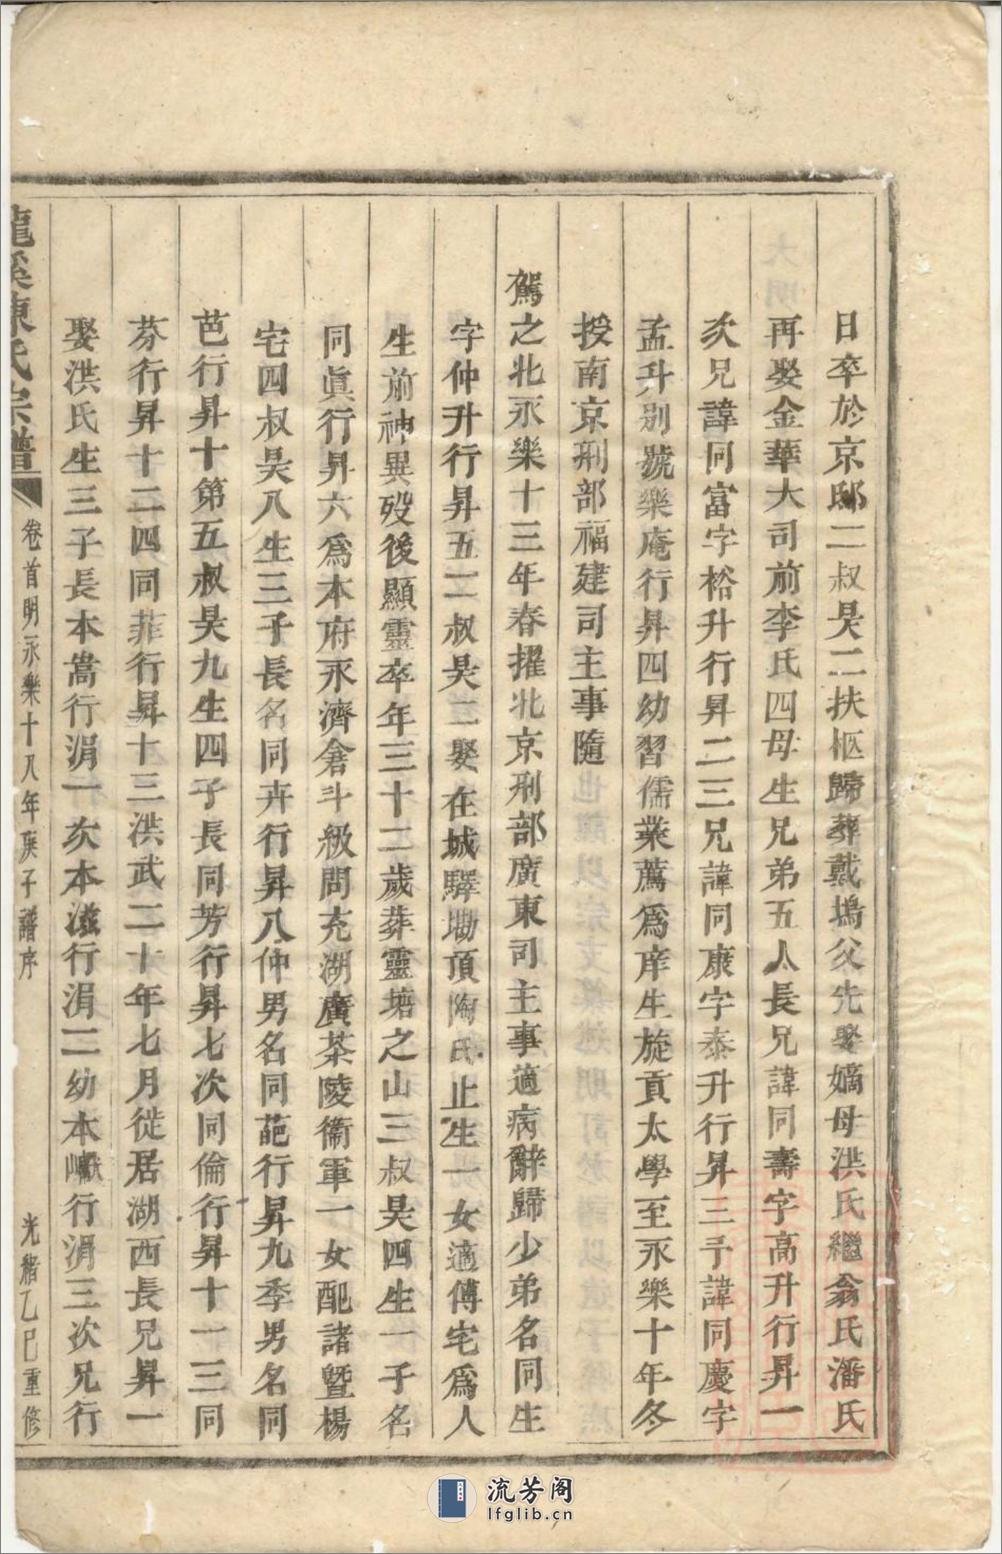 日卒於京邸二叔昊二扶柩歸葬戴塢父先娶嫡母洪氏繼翁氏潘氏
再娶金華大司前李氏四母生兄弟五人長兄諱同壽字高升行昇一
次兄諱同富字裕升行昇二三兄諱同康字泰升行昇三予諱同慶字
孟升別號樂庵行昇四幼習儒業薦為庠生旋貢太學至永樂十年冬
授南京刑部福建司主事隨
駕之北永樂十三年春擢北京刑部廣東司主事適病辭歸少弟名同生
字仲升行昇五二叔昊二娶在城驛坳頂陶氏止生一女適傅宅為人
生前神異歿後顯靈卒年三十二歲葬靈塘之山三叔昊四生一子名
同眞行昇六為本府永濟倉斗級問充湖廣茶陵衞軍一女配諸暨楊
宅四叔昊八生三子長名同卉行昇八仲男名同葩行昇九季男名同
芭行昇十第五叔昊九生四子長同芳行昇七次同倫行昇十一三同
芬行昇十二四同菲行昇十三洪武二十年七月徙居湖西長兄昇一
娶洪氏生三子長本嵩行涓一次本滋行涓二幼本巘行涓三次兄行
龍溪陳氏宗譜 卷首明永樂十八年庚子譜序 光緒乙巳重修
流芳阁
lfglib.cn.com